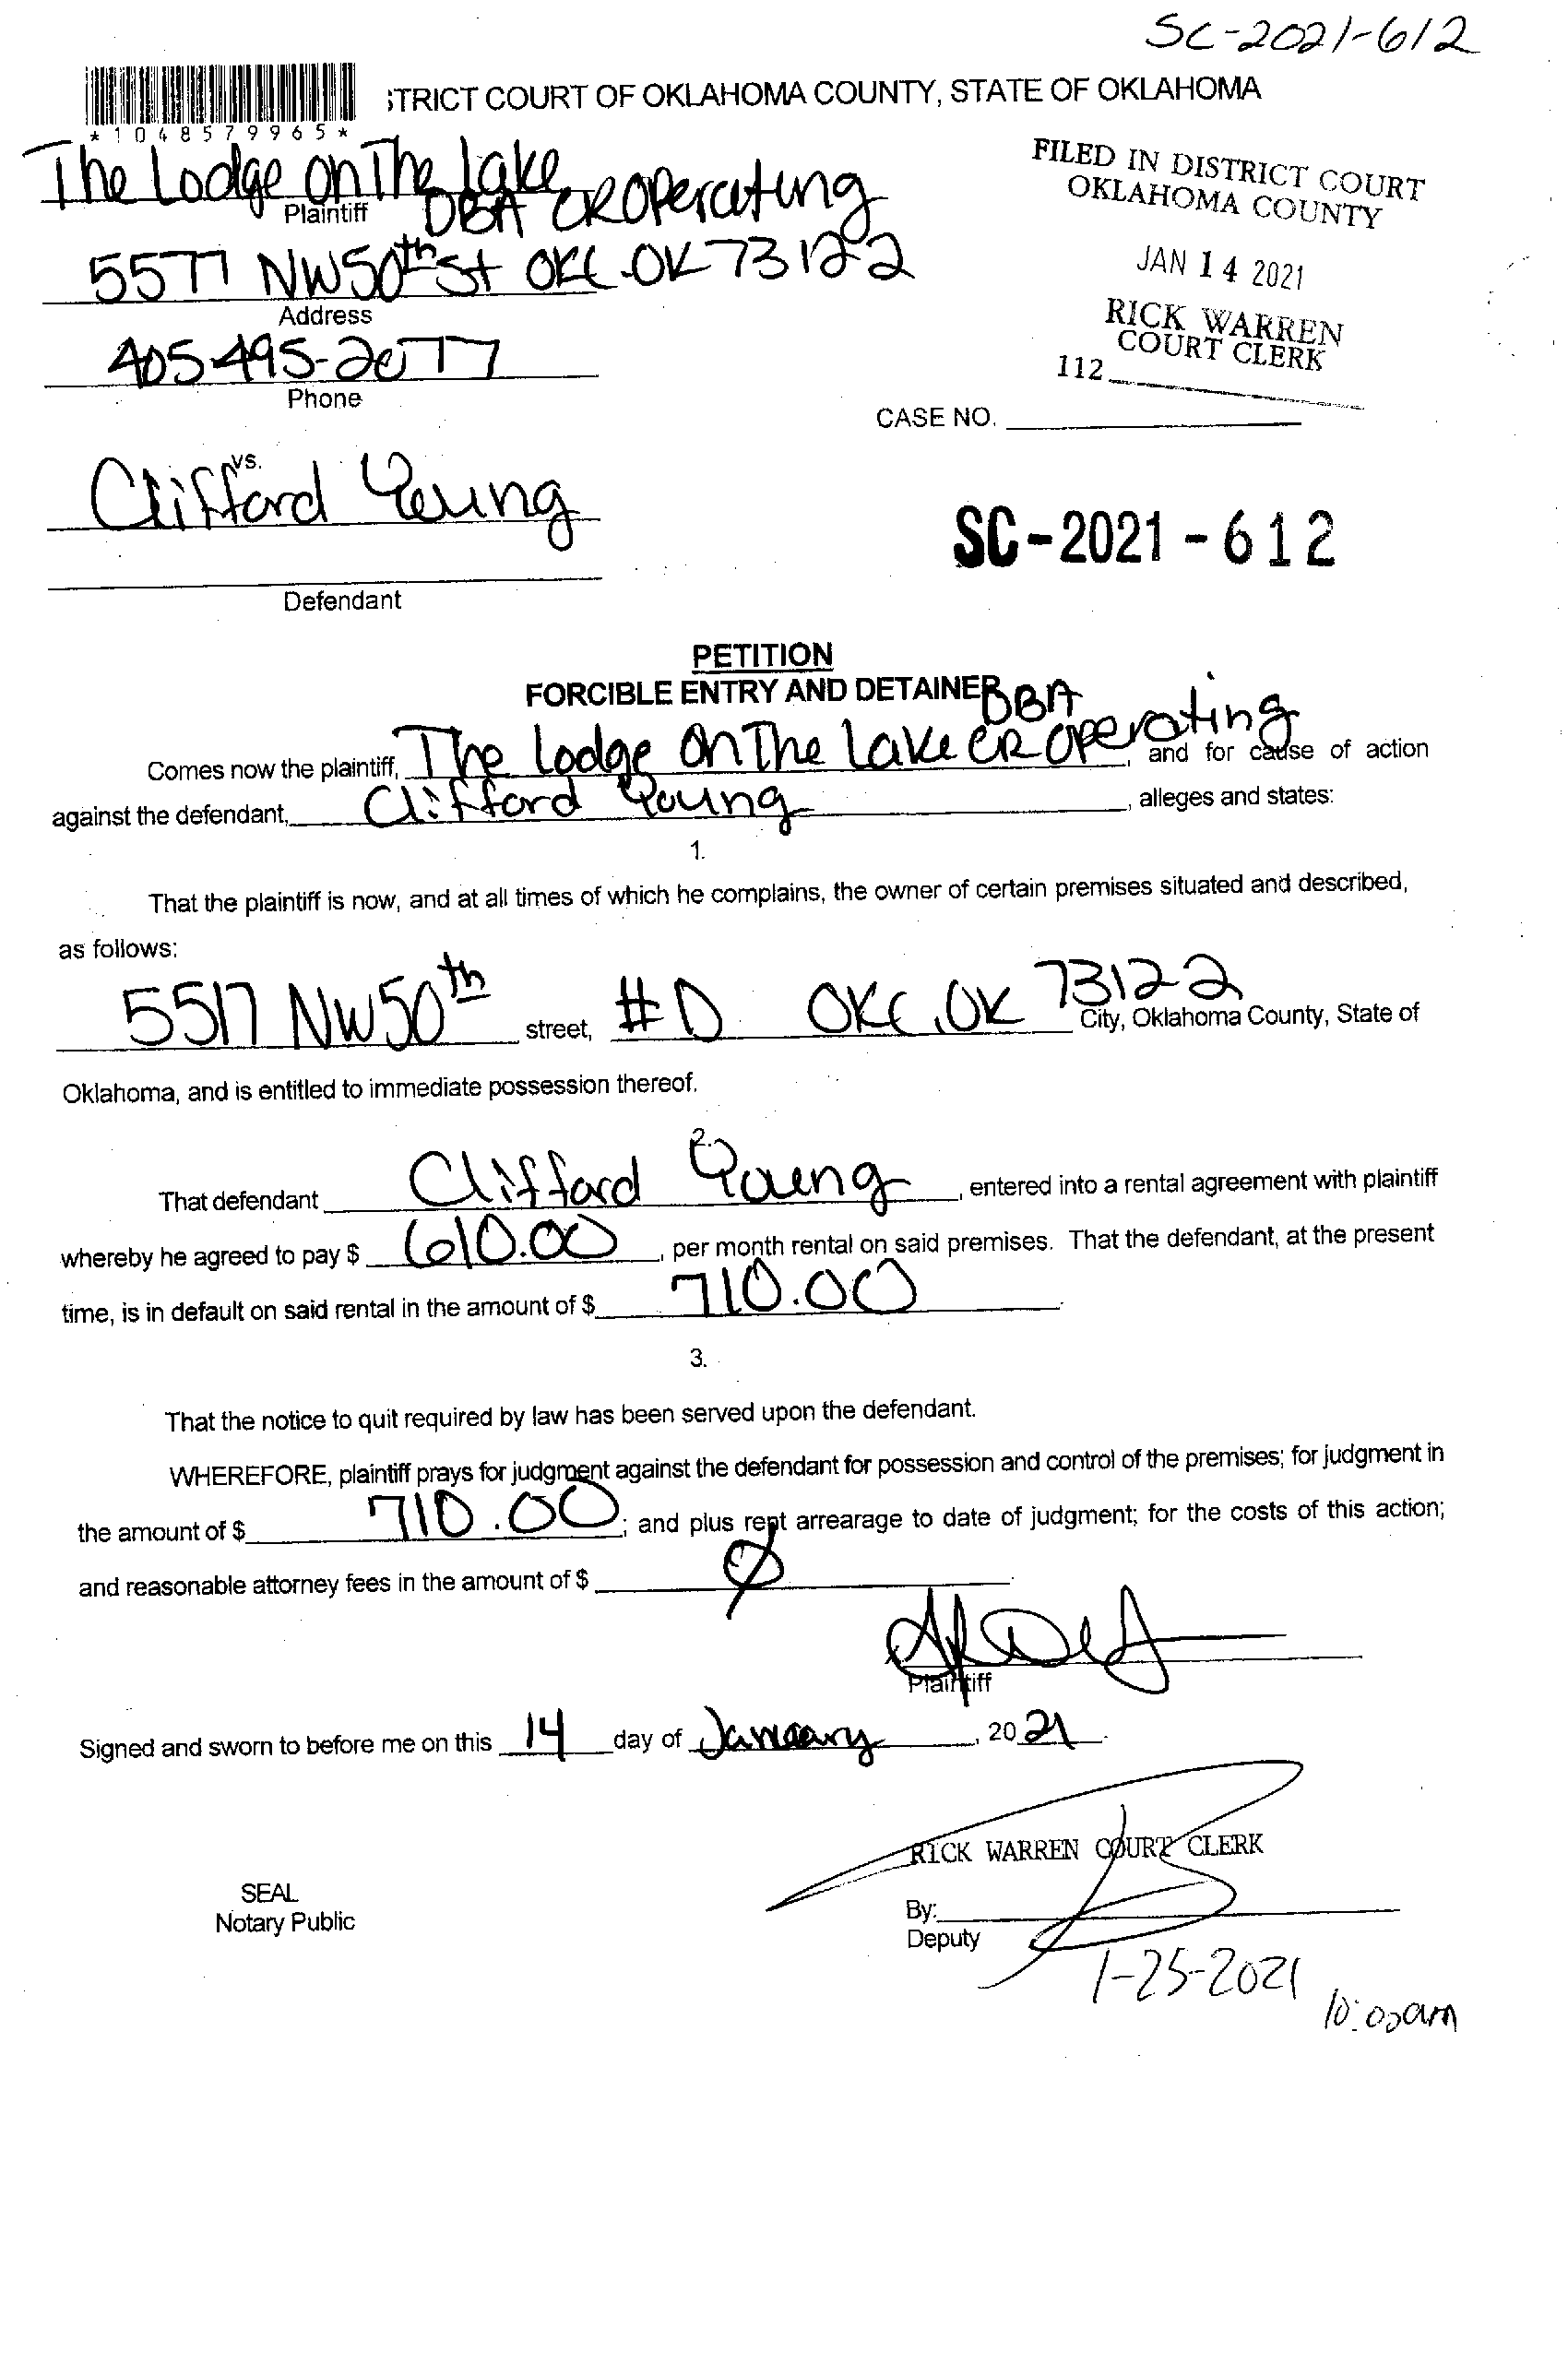 SC-2021-612
STRICT COURT OF OKLAHOMA COUNTY, STATE OF OKLAHOMA
*1048579965*
The Lodge on The Lake
Plaintiff DBA CR Operating
5577 NW 50th St OKC OK 73122
Address
405-495-2077
Phone
FILED IN DISTRICT COURT
OKLAHOMA COUNTY
JAN 14 2021
RICK WARREN
COURT CLERK
112
CASE NO.
vs.
Clifford Young
SC-2021-612
Defendant
PETITION
FORCIBLE ENTRY AND DETAINER
DBA
Comes now the plaintiff, The Lodge On The Lake CR Operating, and for cause of action
against the defendant, Clifford Young, alleges and states:
1.
That the plaintiff is now, and at all times of which he complains, the owner of certain premises situated and described,
as follows:
5517 NW 50th street, #D OKC, OK 73122 City, Oklahoma County, State of
Oklahoma, and is entitled to immediate possession thereof.
2.
That defendant Clifford Young, entered into a rental agreement with plaintiff
whereby he agreed to pay $ 610.00, per month rental on said premises. That the defendant, at the present
time, is in default on said rental in the amount of $ 710.00.
3.
That the notice to quit required by law has been served upon the defendant.
WHEREFORE, plaintiff prays for judgment against the defendant for possession and control of the premises; for judgment in
the amount of $ 710.00; and plus rent arrearage to date of judgment; for the costs of this action;
and reasonable attorney fees in the amount of $ Ø.
Plaintiff
Signed and sworn to before me on this 14 day of January, 2021.
RICK WARREN COURT CLERK
SEAL
Notary Public
By:
Deputy
1-25-2021
10:00am